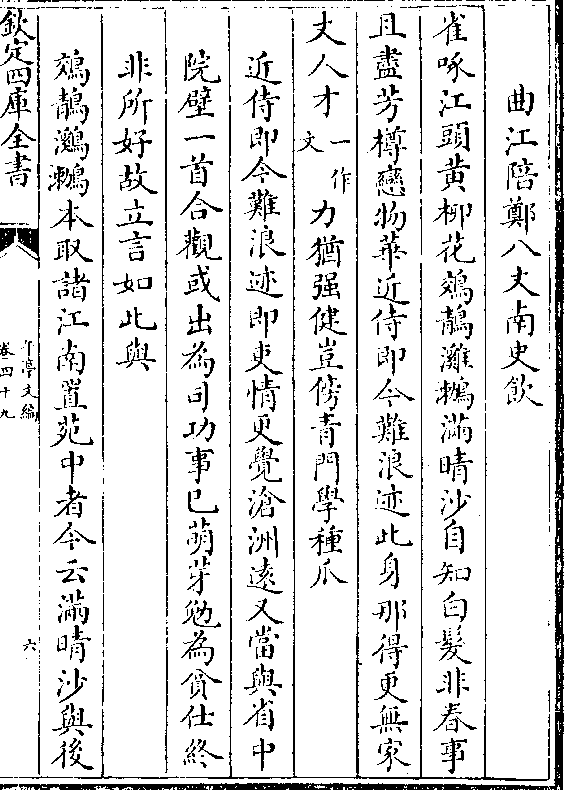 曲江陪鄭八丈南史飲
雀啄江頭黄柳花鵁鶄灘𪆟滿晴沙自知白髮非春事
且盡芳樽戀物華近侍即今難浪迹此身那得更無家
丈人才一作文力猶强健豈傍青門學種爪
近侍即今難浪迹即吏情更覺滄洲遠又當與省中
院壁一首合觀或出為司功事已萌芽勉為貧仕終
非所好故立言如此與
鵁鶄鸂𪆟本取諸江南置苑中者今云滿晴沙與後
欽定四庫全書
卷四十九
六